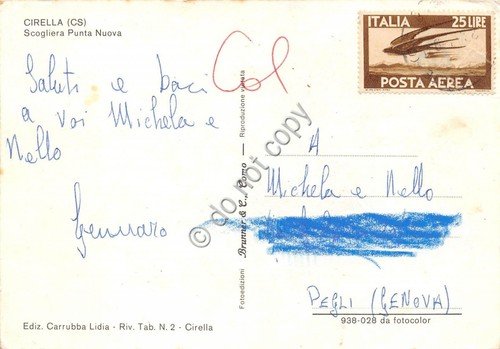 CIRELLA (CS)
Scogliera Punta Nuova
Saluti e baci
a voi Michela e
Nello
Gennaro
Col
ITALIA 25 LIRE
POSTA AEREA
A
Michela e Nello
PEGLI (GENOVA)
938-028 da fotocolor
Fotoedizioni Brunner & C., Como — Riproduzione vietata
© do not copy
Ediz. Carrubba Lidia - Riv. Tab. N. 2 - Cirella